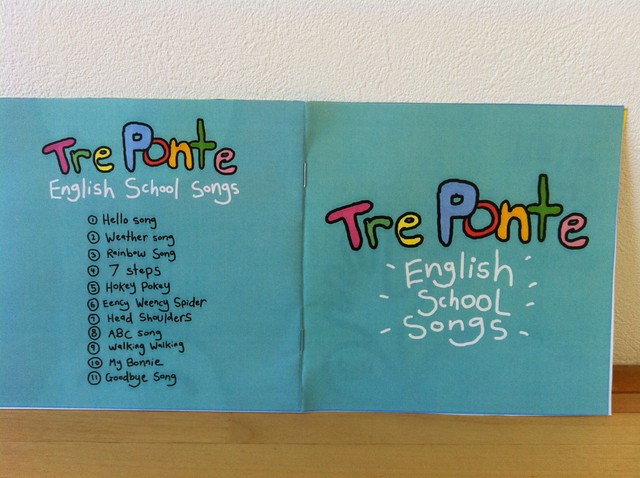 Tre Ponte
English School Songs
1 Hello song
2 Weather song
3 Rainbow Song
4 7 steps
5 Hokey Pokey
6 Eency Weency Spider
7 Head Shoulders
8 ABC song
9 Walking Walking
10 My Bonnie
11 Goodbye Song
Tre Ponte
English
School
Songs